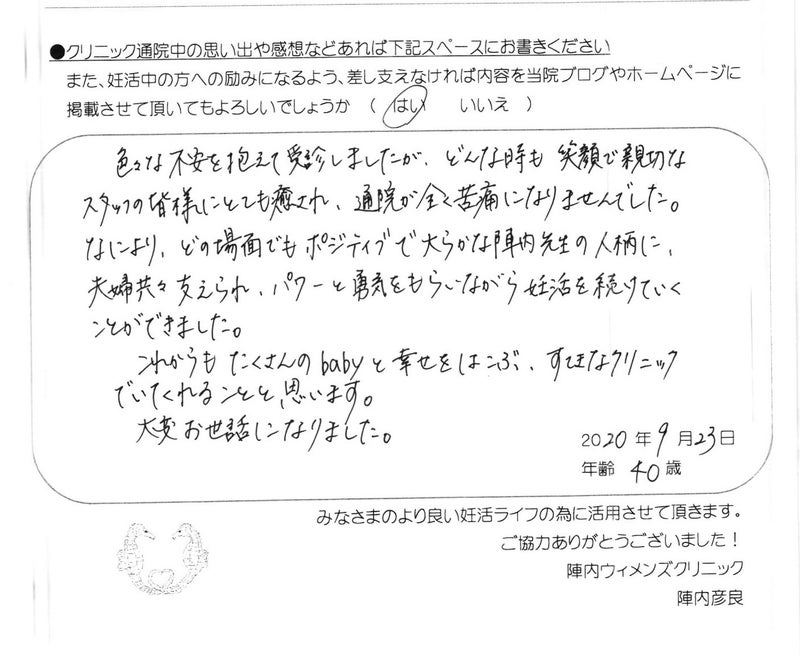 ●クリニック通院中の思い出や感想などあれば下記スペースにお書きください
また、妊活中の方への励みになるよう、差し支えなければ内容を当院ブログやホームページに
掲載させて頂いてもよろしいでしょうか （ はい いいえ ）
色々な不安を抱えて受診しましたが、どんな時も笑顔で親切な
スタッフの皆様にとても癒され、通院が全く苦痛になりませんでした。
なにより、どの場面でもポジティブで大らかな陣内先生の人柄に、
夫婦共々支えられ、パワーと勇気をもらいながら妊活を続けていく
ことができました。
これからもたくさんのbabyと幸せをはこぶ、すてきなクリニック
でいてくれることと思います。
大変お世話になりました。
2020年9月23日
年齢 40歳
みなさまのより良い妊活ライフの為に活用させて頂きます。
ご協力ありがとうございました！
陣内ウィメンズクリニック
陣内彦良